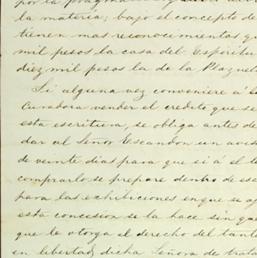 por la
la materia; bajo el concepto de
tienen mas reconocimientos que
mil pesos la casa del Espíritu
diez mil pesos la de la Plazuel
Si alguna vez conviniere á la
Curadora vender el credito que se
esta escritura, se obliga antes de
dar al Señor Escandon un avis
de veinte dias para que si á el le
comprarlo se prepare dentro de ese
para las exhibiciones en que se
esta concesion se la hace sin que
que le otorga el derecho del tanto
en libertad dicha Señora de trata